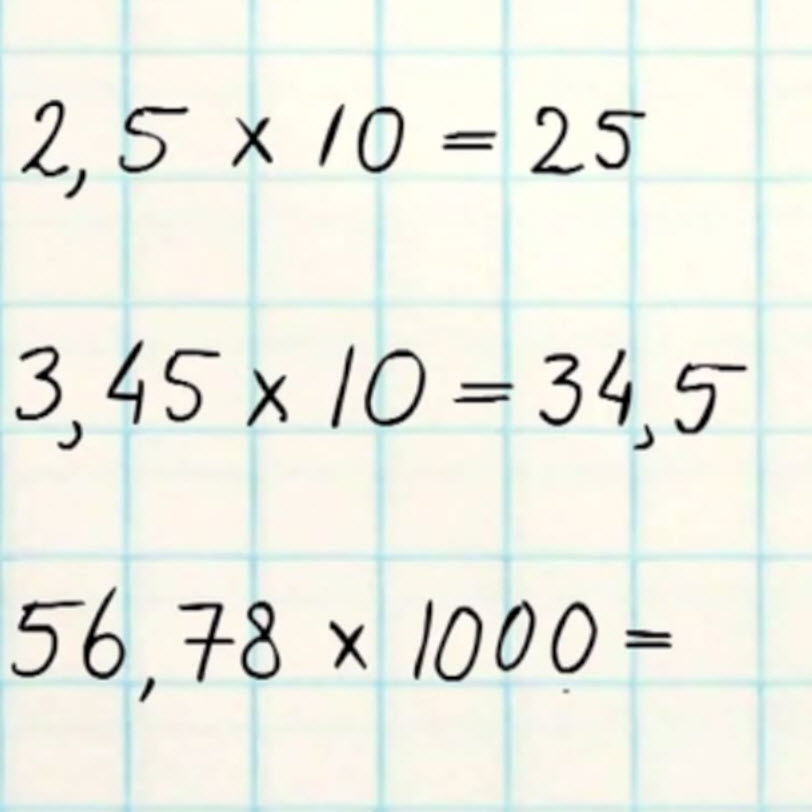 2,5 × 10 = 25
3,45 × 10 = 34,5
56,78 × 1000 =